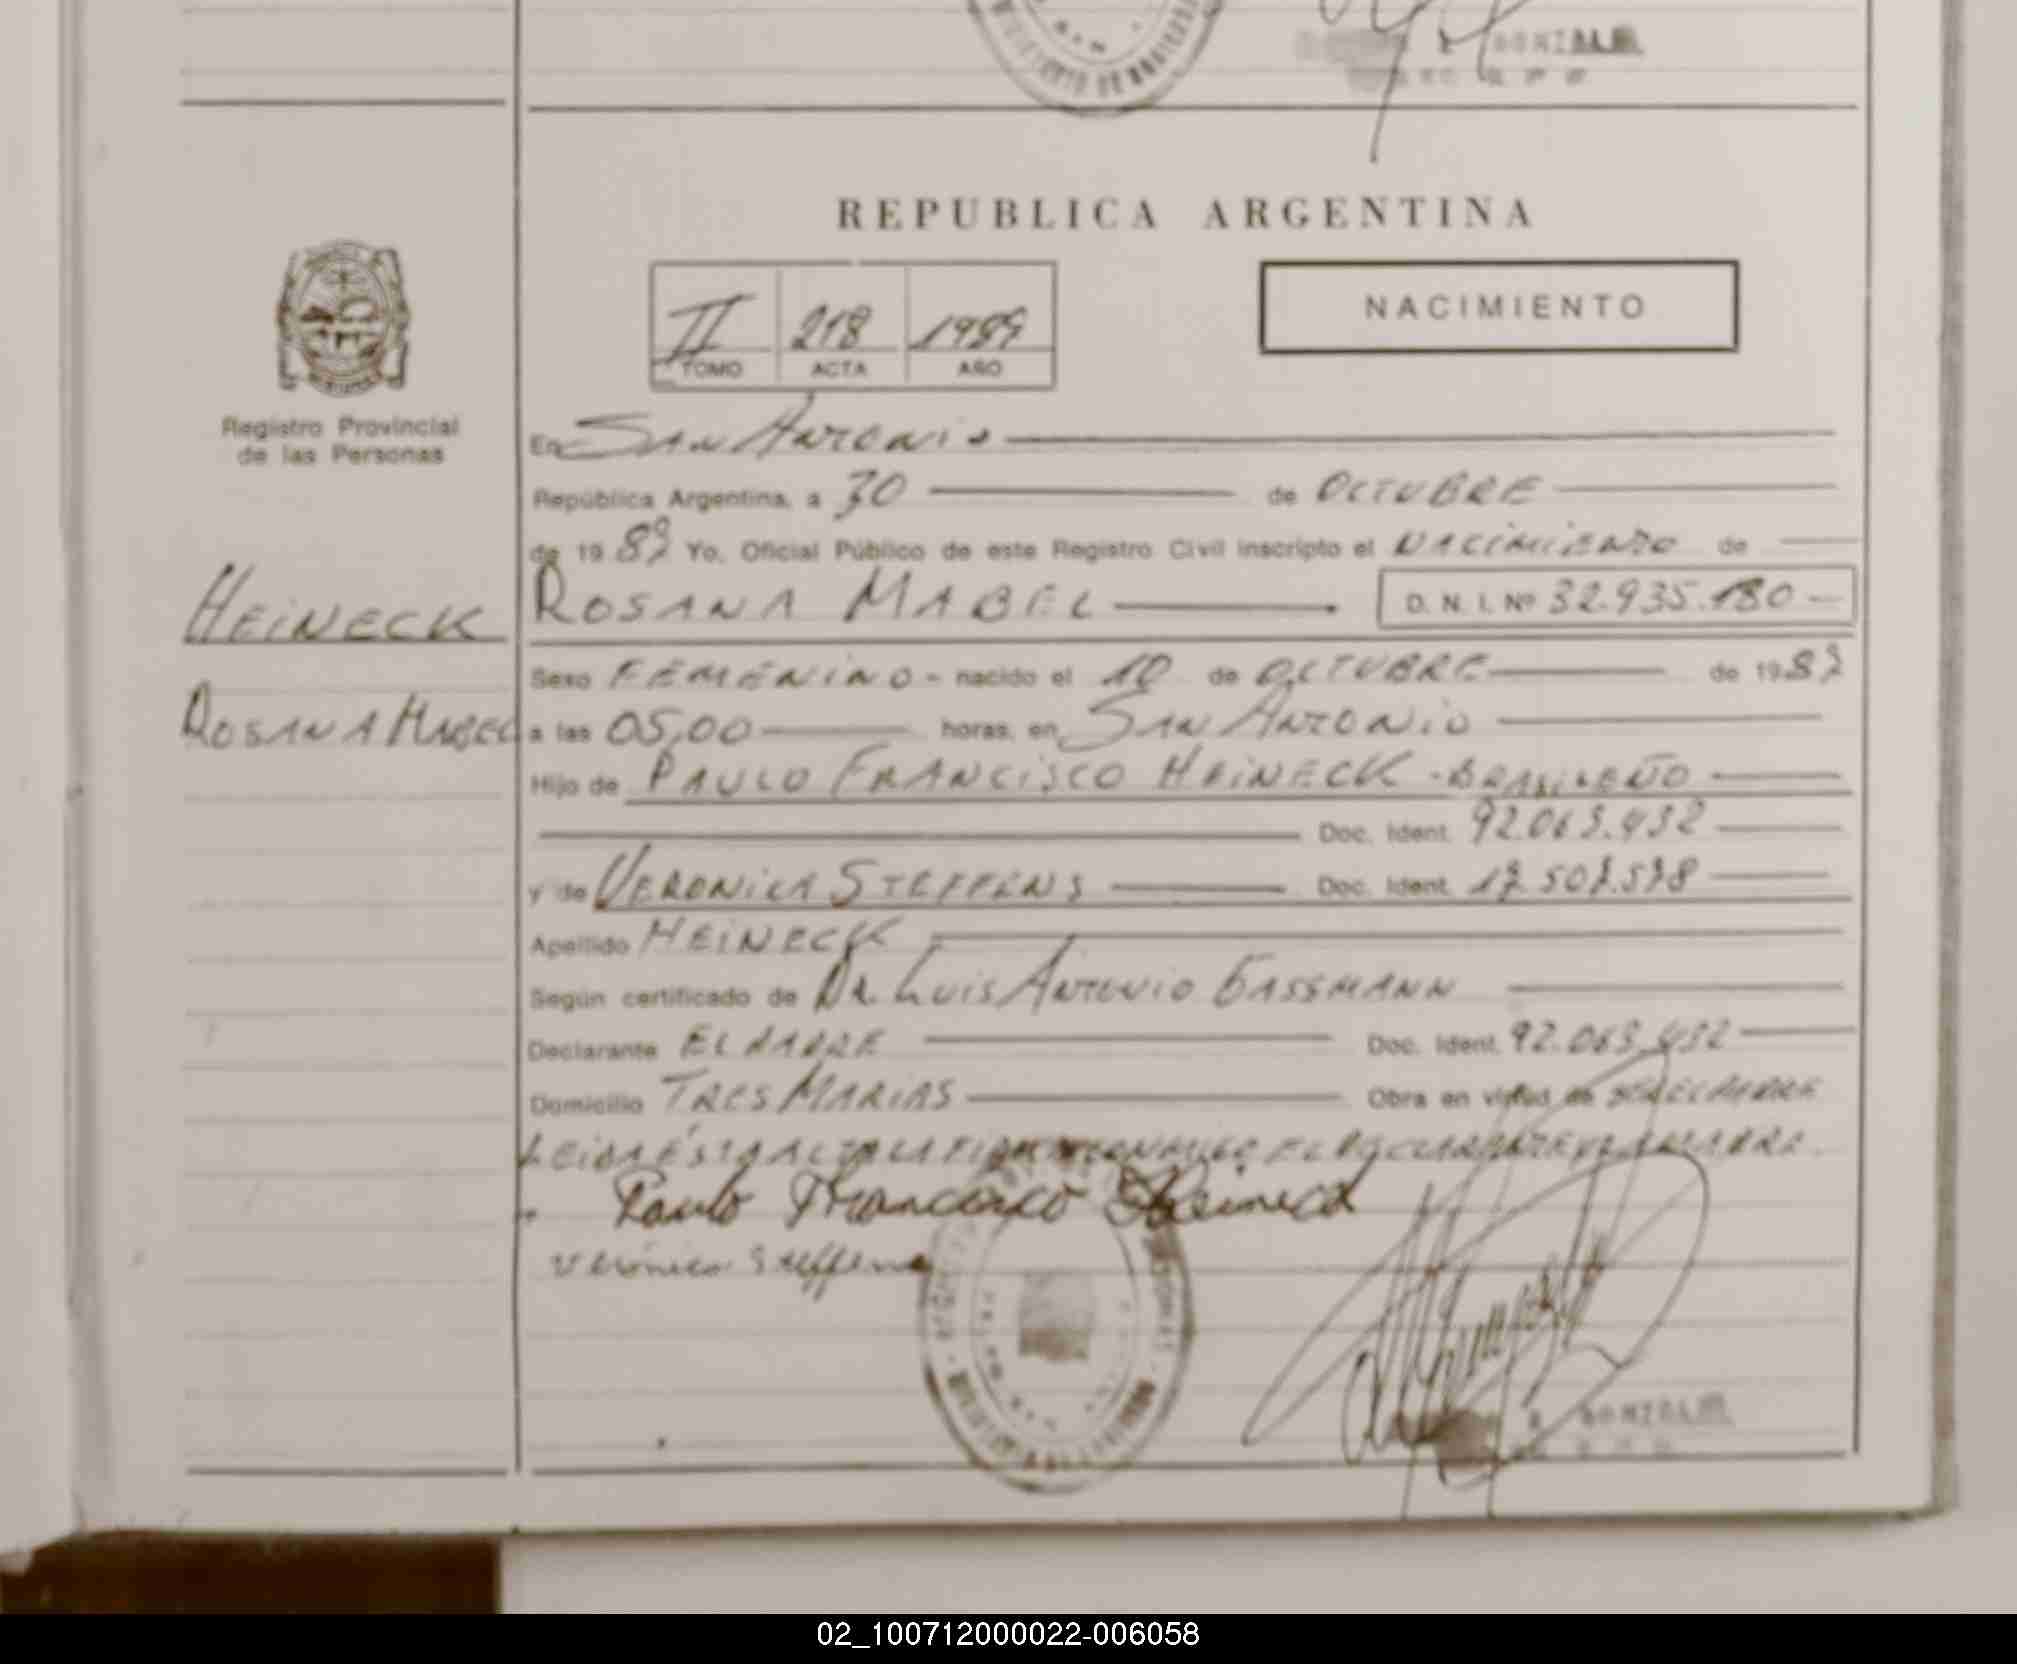 GONZALEZ
REPUBLICA ARGENTINA
NACIMIENTO
II 218 1987
TOMO ACTA AÑO
Registro Provincial
de las Personas
En San Antonio
República Argentina, a 30 de OCTUBRE
de 19 87 Yo, Oficial Público de este Registro Civil inscripto el NACIMIENTO de
HEINECK
ROSANA MABEL D. N. I. Nº 32.935.180
Sexo FEMENINO - nacido el 10 de OCTUBRE de 1987
ROSANA MABEL
a las 05,00 horas, en SAN ANTONIO
Hijo de PAULO FRANCISCO HEINECK - BRASILEÑO
Doc. Ident. 92.063.432
y de VERONICA STEFFENS Doc. Ident. 17.507.578
Apellido HEINECK
Según certificado de DR. LUIS ANTONIO GASSMANN
Declarante EL PADRE Doc. Ident. 92.063.432
Domicilio TRES MARIAS Obra en virtud de SER EL PADRE
LEIDA ÉSTA ACTA LA FIRMAN CONMIGO EL DECLARANTE Y LA MADRE.
Paulo Francisco Heineck
Verónica Steffens
GONZALEZ
02_100712000022-006058